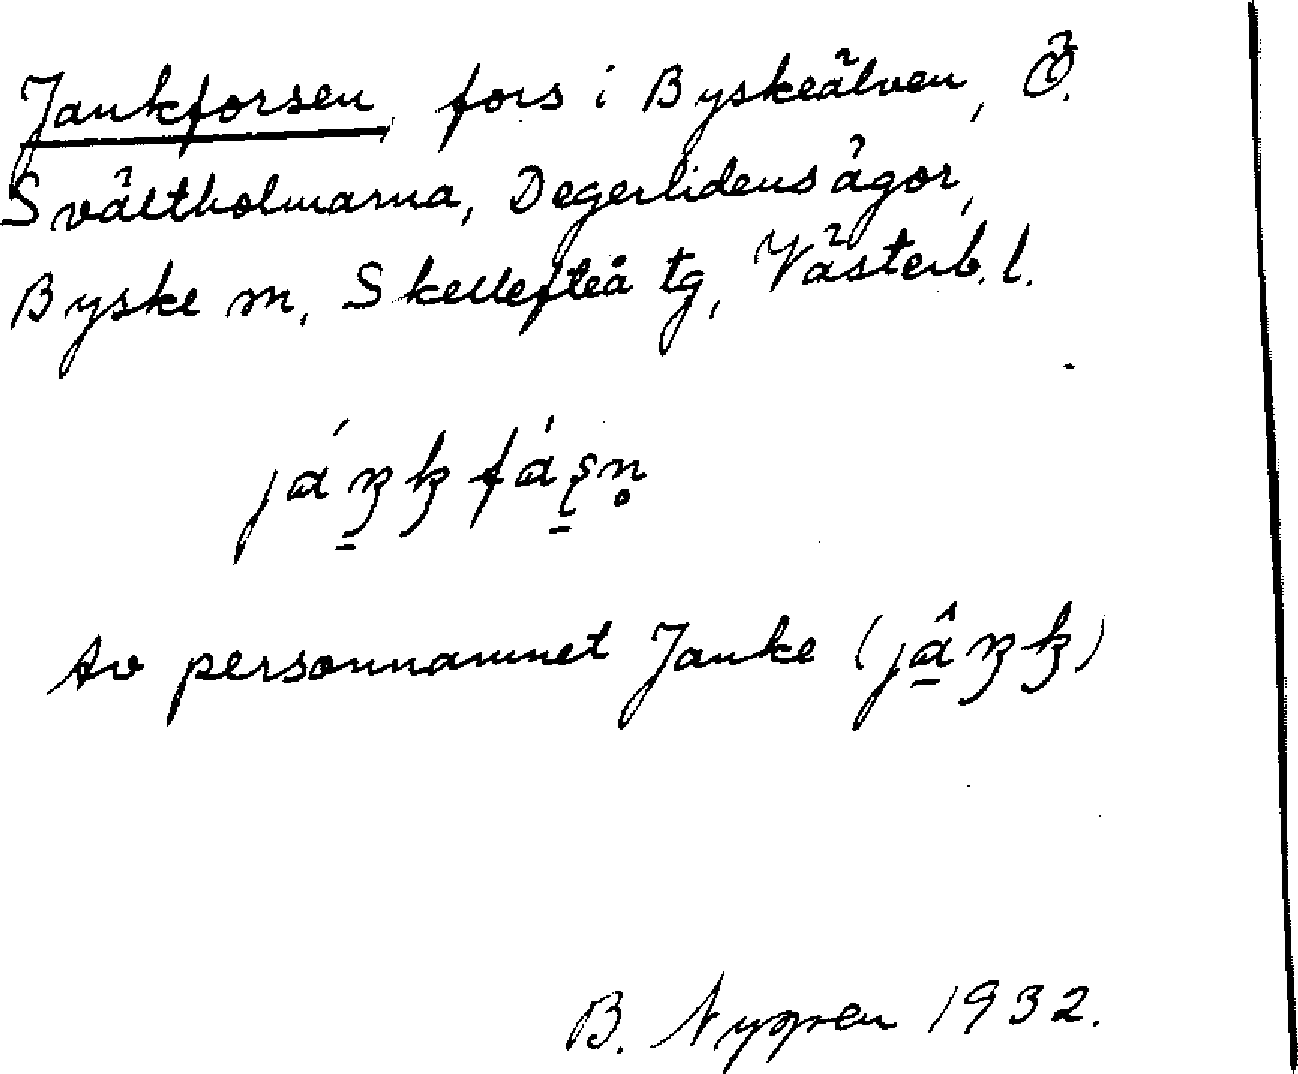 Jankforsen, fors i Byskeälven, Ö.
Svältholmarna, Degerlidens ägor,
Byske sn, Skellefteå tg, Västerb. l.
Av personnamnet Janke
B. Nygren 1932.